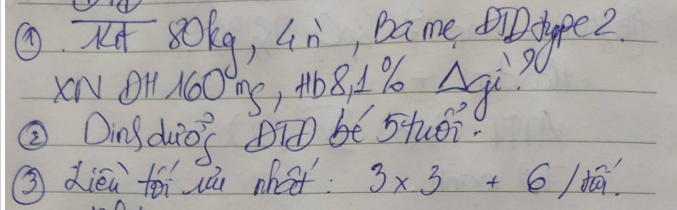 ① 80kg, 4n, Ba mẹ ĐTĐ type 2.
XN ĐH 160mg, Hb 8,1% Δ gì?
② Dinh dưỡng ĐTĐ bé 5 tuổi.
③ Liều tối ưu nhất: 3 x 3 + 6 / tối.